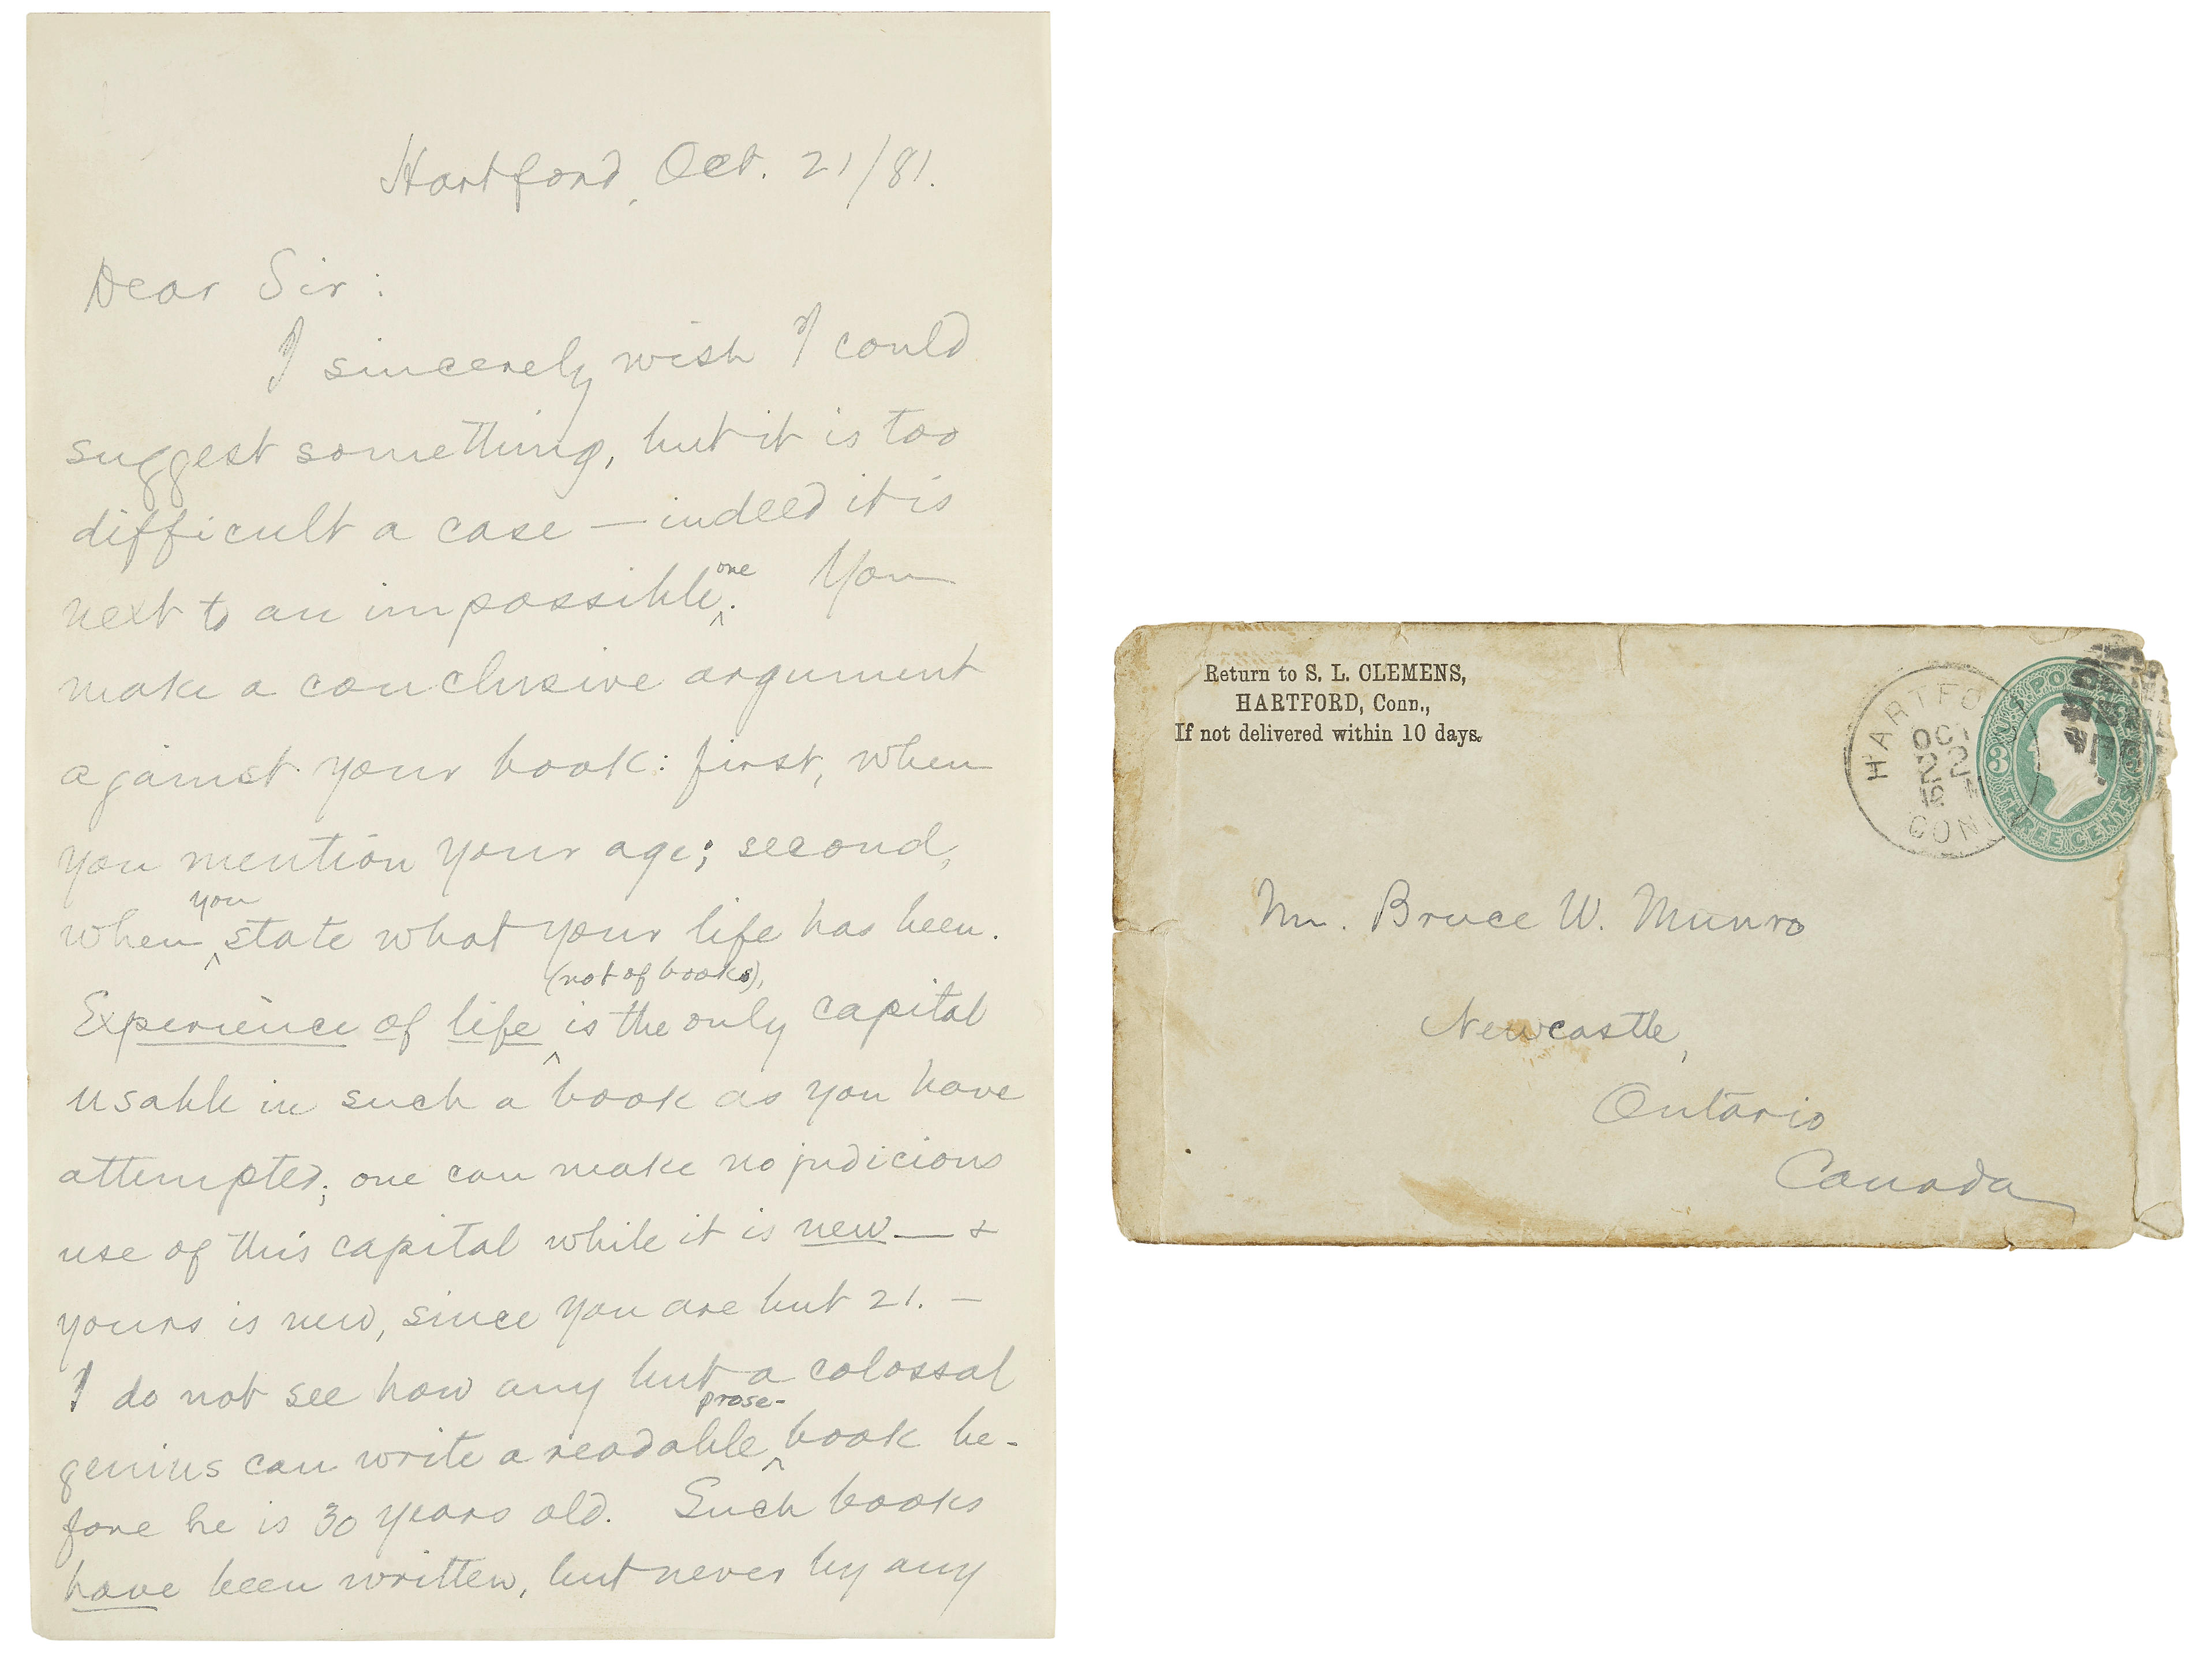 Hartford, Oct. 21/81.
Dear Sir:
I sincerely wish I could
suggest something, but it is too
difficult a case — indeed it is
next to an impossible one. You
make a conclusive argument
against your book: first, when
you mention your age; second,
when you state what your life has been.
Experience of life (not of books), is the only capital
usable in such a book as you have
attempted; one can make no judicious
use of this capital while it is new — &
yours is new, since you are but 21. —
I do not see how any but a colossal
genius can write a readable prose-book be-
fore he is 30 years old. Such books
have been written, but never by any
Return to S. L. CLEMENS,
HARTFORD, Conn.,
If not delivered within 10 days.
HARTFO
OCT
22
CON
U.S. POSTAGE
3
THREE CENTS
Mr. Bruce W. Munro
Newcastle,
Ontario
Canada